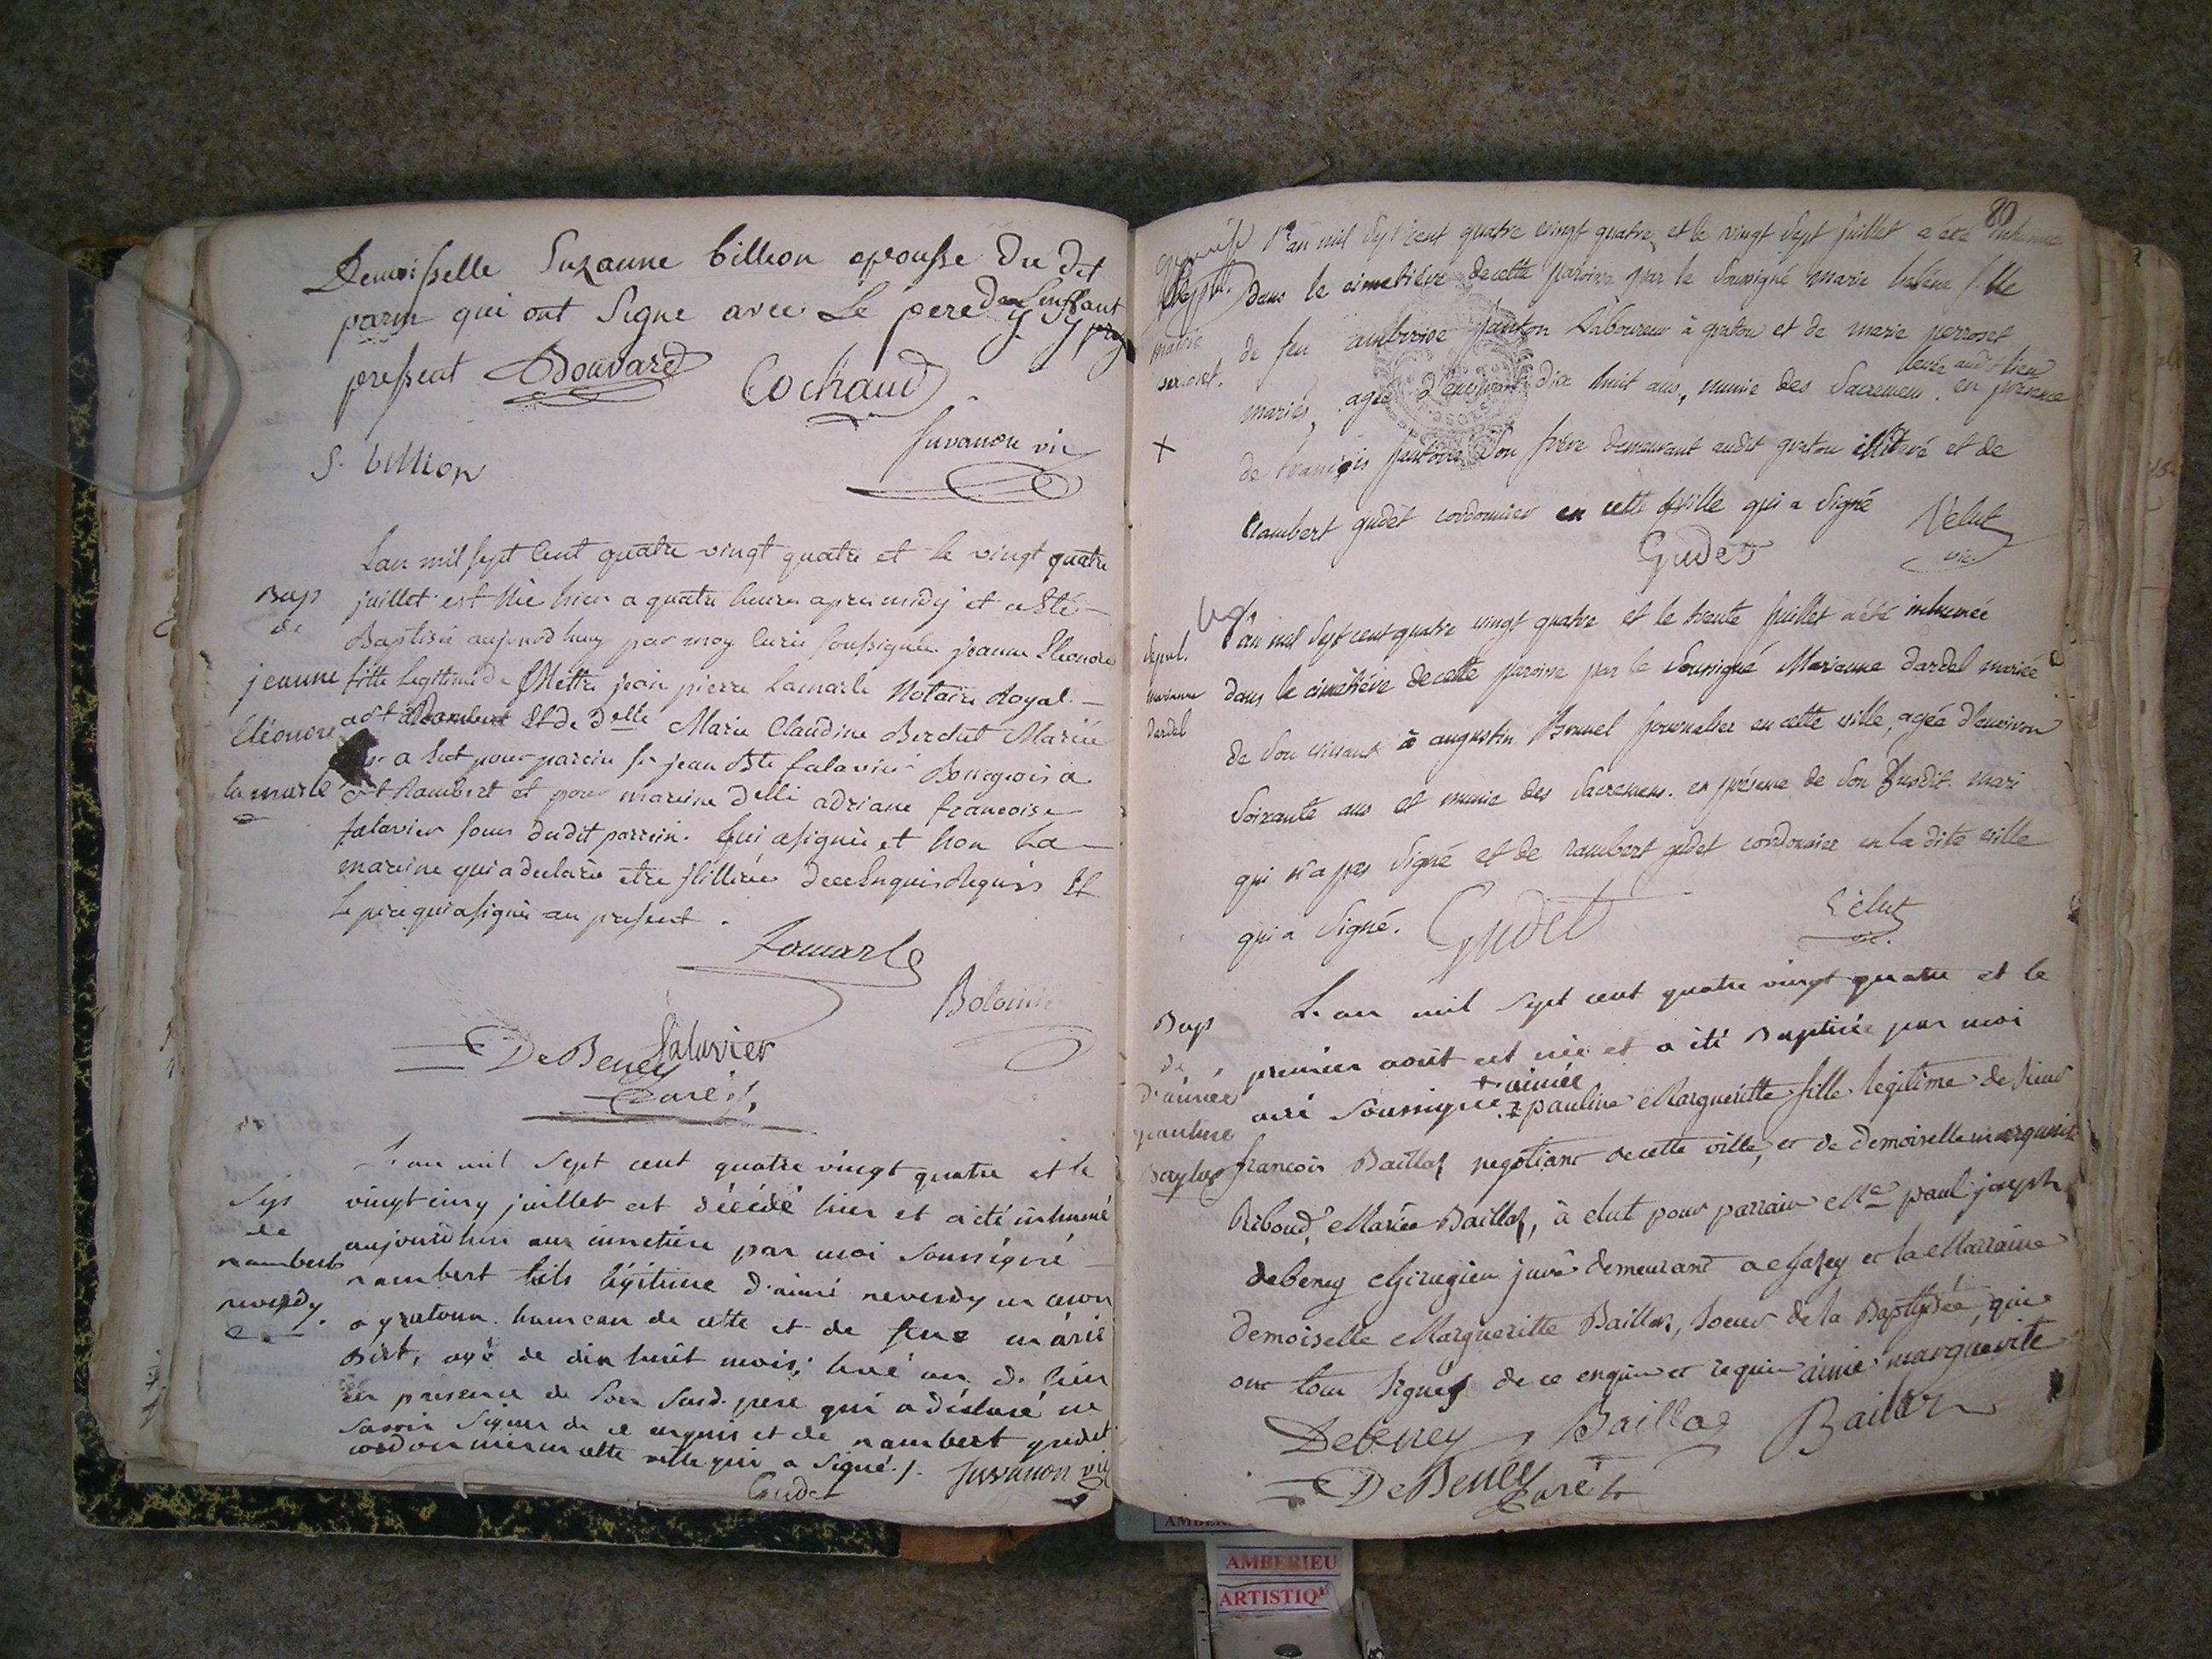 Demoiselle Suzanne billion epouse du dit
parin qui ont Signé avec Le pere de Lenffant
present Bouvard Cochaud
Juvanon vic
S. billion
Lan mil sept Cent quatre vingt quatre et le vingt quatre
Bap juillet est Née hier a quatre heures apres midy et a Eté
de Baptisée aujourdhuy par moy Curé soussigné jeanne Eleonore
jeanne fille Legitime de Mettre jean pierre Lamarle Notaire Royal
Eléonore a st Rambert Et de Delle Marie Claudine Berchut Mariée
la marle a Eut pour parein sr jean Bte falavier Bourgeois a
st Rambert et pour mareine Delle adriane francoise
falavier soeur dudit parrein. qui a signé et non La
mareine qui a declaré etre illiterée de ce Enquis Requis Et
Le pere qui a signé au present.
Lamarle
falavier
DeBeney
Curé
L'an mil Sept cent quatre vingt quatre et le
Sep vingt cinq juillet est décédé hier et a été inhumé
de aujourdhui au cimetiere par moi Soussigné
rambert rambert fils légitime d'aimé reverdy
reverdy. a gratoux hameau de cette et de feue marie
Birt, agé de dix huit mois; levé au d. lieu
en présence de Son Susd. pere qui a déclaré ne
Savoir Signer de ce enquis et de rambert gudet
cordonnier en cette ville qui a Signé./. Juvanon vic
Gudet
80
L'an mil Sept cent quatre vingt quatre et le vingt Sept juillet a été inhumée
Sepul. dans le cimetière de cette paroisse par le Soussigné marie heléne fille
de feu ambroise Laboureur à gratou et de marie perroset
levée au dit lieu
mariés, agée d'environ dix huit ans, munie des Sacremens. en présence
de francois Son frère demeurant audit gratou illiteré et de
Rambert gudet cordonnier en cette ville qui a Signé Velut
Gudet vic
L'an mil Sept cent quatre vingt quatre et le trente juillet a été inhumée
Sepul. dans le cimetière de cette paroisse par le Soussigné Marianne dardel mariée
marianne
dardel de Son vivant à augustin Bonnel journalier en cette ville, agée d'environ
Soixante ans et munie des Sacremens. en présence de Son Susdit mari
qui n'a pas Signé et de rambert gudet cordonnier en la dite ville
qui a Signé. Gudet Velut
vic.
L'an mil Sept cent quatre vingt quatre et le
Bap premier août est née et a été Baptisée par moi
de + aimée
d'aimée curé Soussigné + pauline Margueritte fille legitime de Sieur
pauline
francois Baillof negotiant de cette ville, et de demoiselle marguerite
Riboud, Mariée Baillof, à elut pour parrain Me paul joseph
debeney chirugien juré demeurant a et la Marraine
demoiselle Margueritte Baillof, soeur de la Baptisée, qui
ont tous Signés de ce enquis et requis aimée marguerite
Debeney Baillod
DeBeney
Curé
AMBERIEU
ARTISTIQ